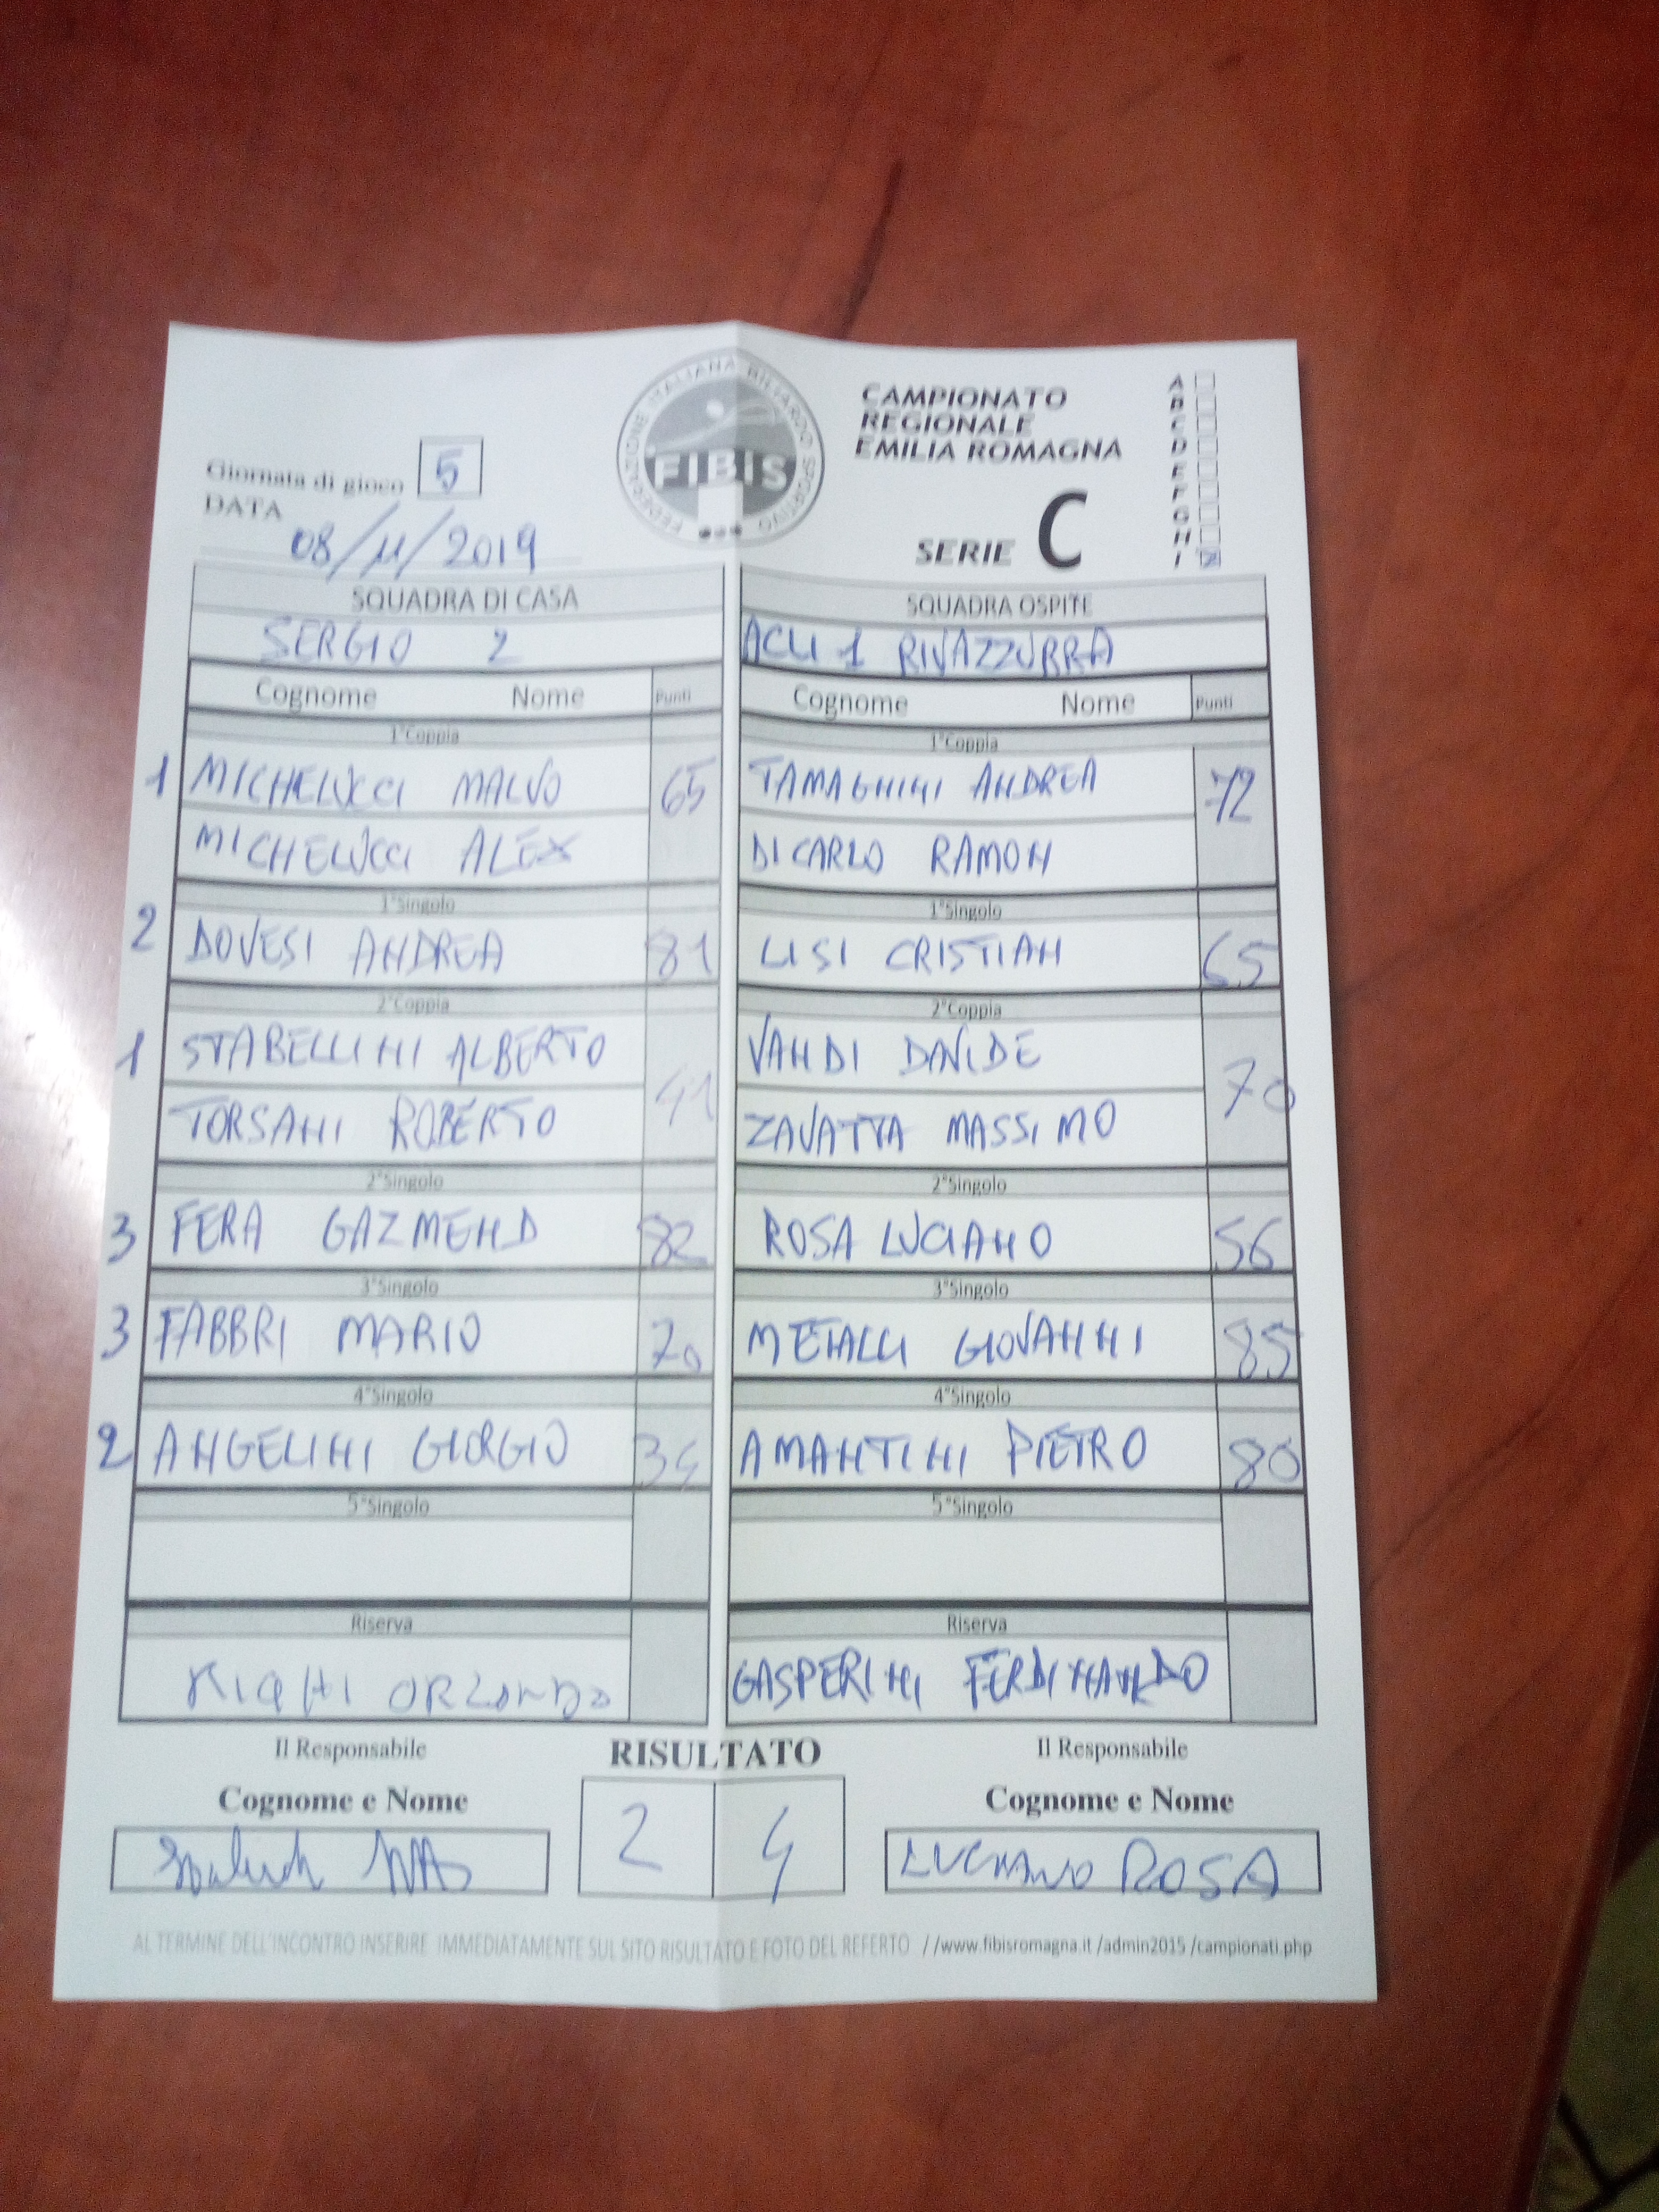 FEDERAZIONE ITALIANA BILIARDO SPORTIVO
FIBIS
CAMPIONATO
REGIONALE
EMILIA ROMAGNA
SERIE C
A
B
C
D
E
F
G
H
I
Giornata di gioco 5
DATA
08/11/2019
SQUADRA DI CASA SQUADRA OSPITE
SERGIO 2 ACLI 1 RIVAZZURRA
Cognome Nome Punti Cognome Nome Punti
1°Coppia 1°Coppia
1 MICHELUCCI MALVO 65 TAMAGNINI ANDREA 72
MICHELUCCI ALEX DI CARLO RAMON
1°Singolo 1°Singolo
2 DOVESI ANDREA 81 LISI CRISTIAN 65
2°Coppia 2°Coppia
1 STABELLINI ALBERTO 41 VANDI DAVIDE 70
TORSANI ROBERTO ZAVATTA MASSIMO
2°Singolo 2°Singolo
3 FERA GAZMEND 82 ROSA LUCIANO 56
3°Singolo 3°Singolo
3 FABBRI MARIO 70 METALLI GIOVANNI 85
4°Singolo 4°Singolo
2 ANGELINI GIORGIO 34 AMANTINI PIETRO 80
5°Singolo 5°Singolo
Riserva Riserva
ORLANDO GASPERINI FERDINANDO
Il Responsabile RISULTATO Il Responsabile
Cognome e Nome 2 4 Cognome e Nome
LUCIANO ROSA
AL TERMINE DELL'INCONTRO INSERIRE IMMEDIATAMENTE SUL SITO RISULTATO E FOTO DEL REFERTO //www.fibisromagna.it /admin2015 /campionati.php